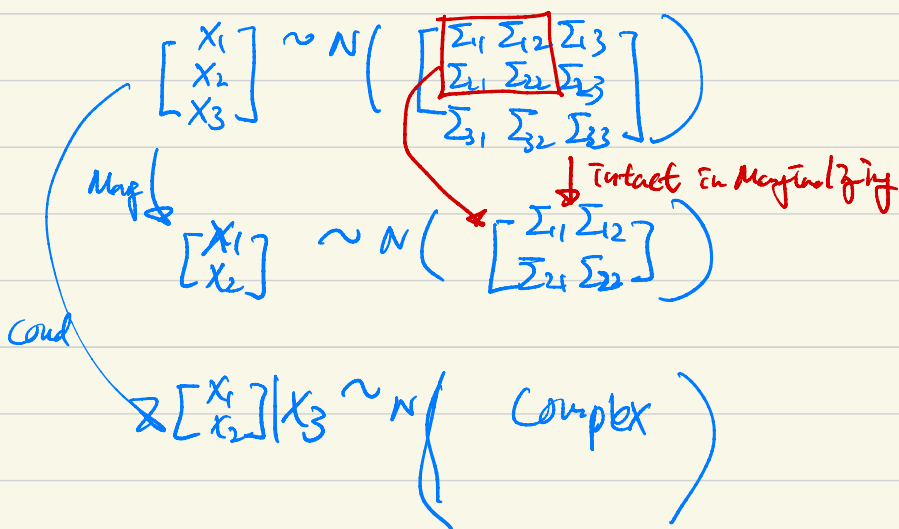 [X1 X2 X3] ~ N( [Σ11 Σ12 Σ13
Σ21 Σ22 Σ23
Σ31 Σ32 Σ33] )
Mag ↓
↓ intact in Marginalizing
[X1 X2] ~ N( [Σ11 Σ12
Σ21 Σ22] )
Cond
[X1 X2] | X3 ~ N( Complex )